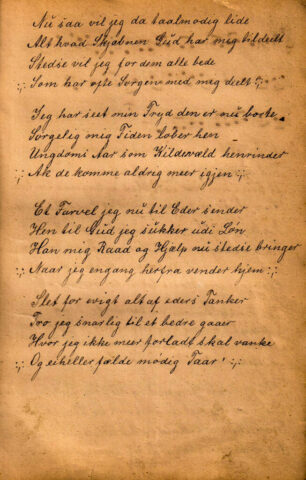 Nu saa vil jeg da taalmodig lide
Alt hvad Skjæbnen Gud har mig tildeelt
Stedse vil jeg for dem alle bede
:,: Som har ofte Sorgen med mig deelt :,:
Jeg har seet min Fryd den er nu borte
Sørgelig mig Tiden løber hen
Ungdoms Aar som Kildevæld henrinder
:,: Ak de komme aldrig meer igjen :,:
Et Farvel jeg nu til Eder sender
Hen til Gud jeg sukker udi Løn
Han mig Raad og Hjælp nu stedse bringer
:,: Naar jeg engang herfra vender hjem :,:
Slet for evigt alt af eders Tanker
Tro jeg snarlig til et bedre gaaer
Hvor jeg ikke meer forladt skal vanke
:,: Og ei heller fælde modig Taar :,: